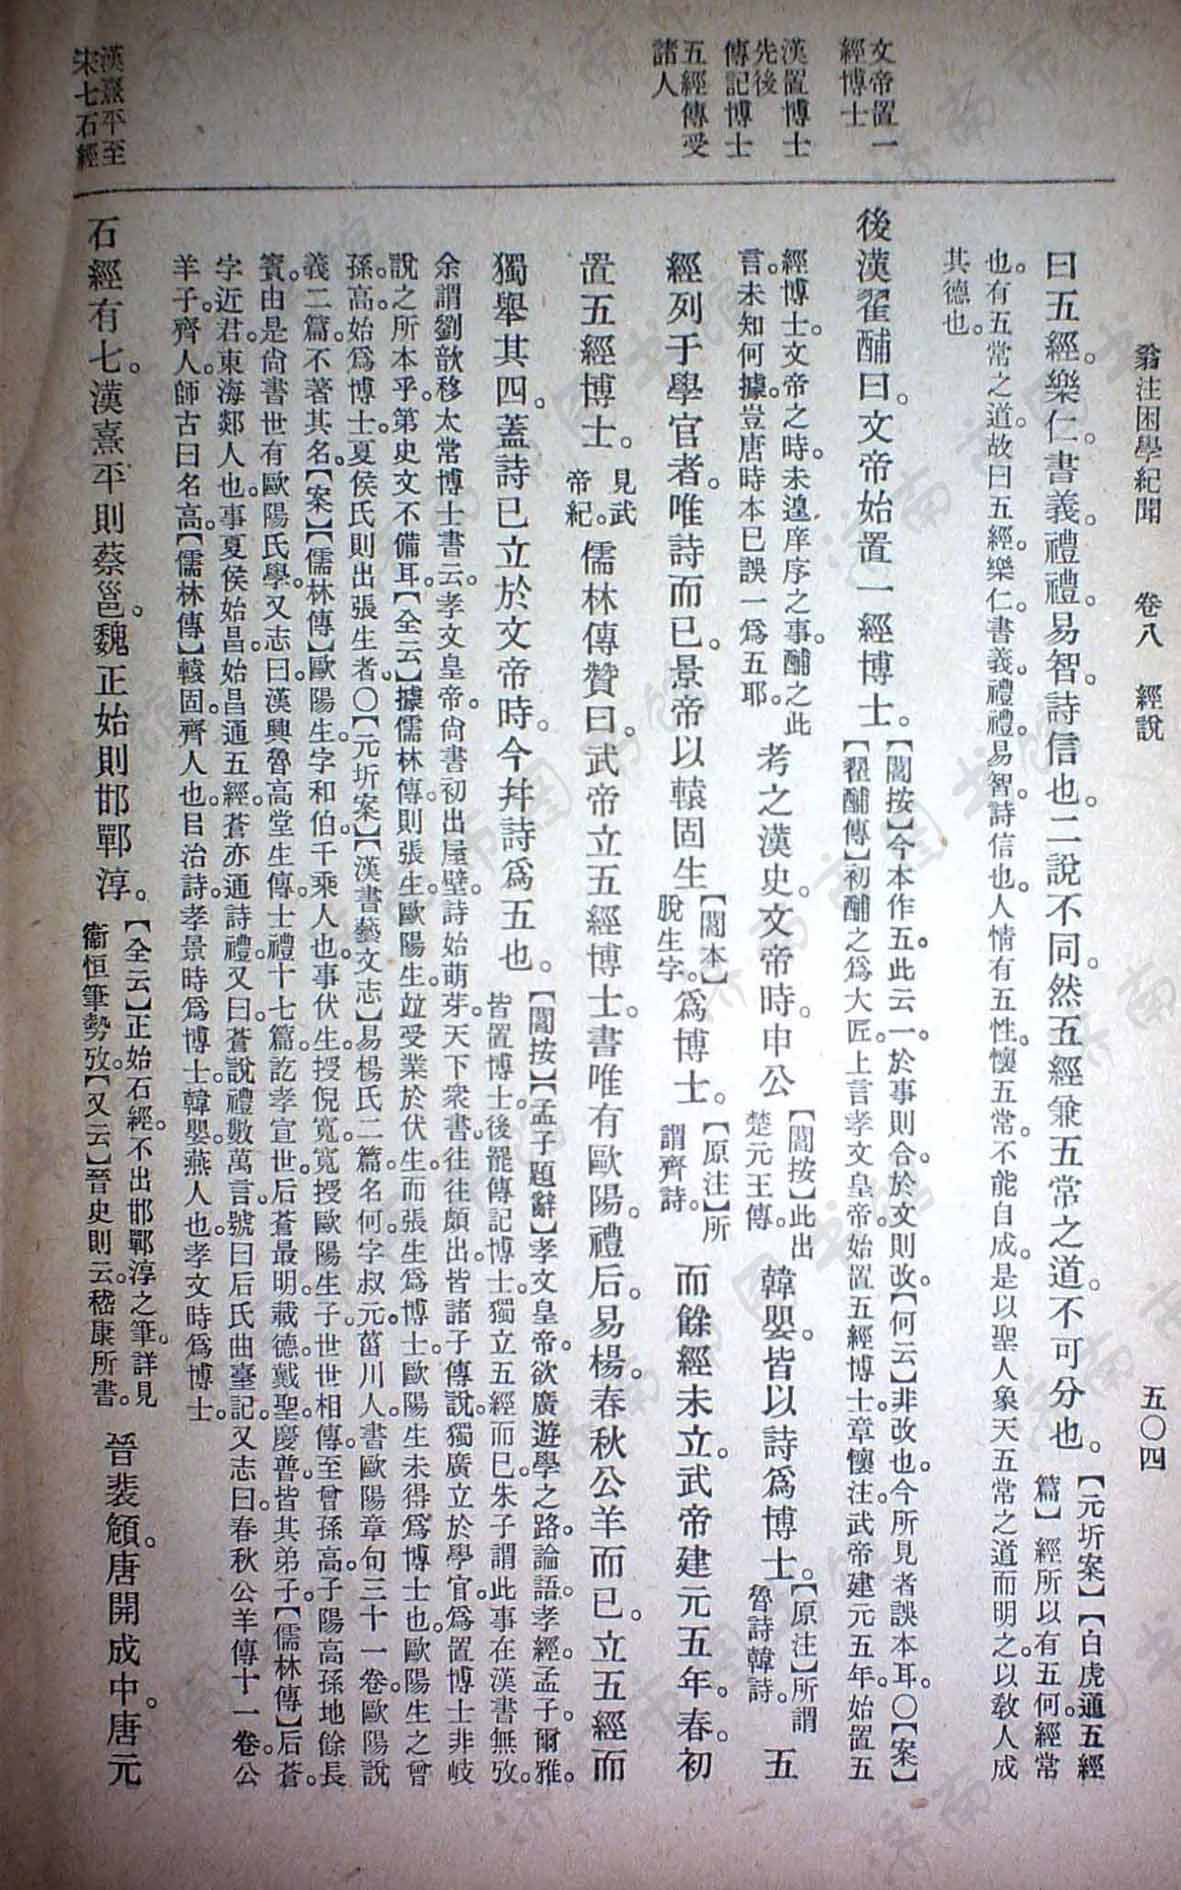 翁注困學紀聞　卷八　經說　五〇四
文帝置一
經博士
漢置博士
先後
傳記博士
五經傳受
諸人
漢熹平至
宋七石經
曰五經。樂仁。書義。禮禮。易智。詩信也。二說不同。然五經兼五常之道。不可分也。【元圻案】【白虎通五經
篇】經所以有五何。經常
也。有五常之道。故曰五經。樂仁。書義。禮禮。易智。詩信也。人情有五性。懷五常。不能自成。是以聖人象天五常之道而明之。以敎人成
其德也。
後漢翟酺曰。文帝始置一經博士。【閻按】今本作五。此云一。於事則合。於文則改。【何云】非改也。今所見者誤本耳。〇【案】
【翟酺傳】初酺之爲大匠。上言孝文皇帝。始置五經博士。章懷注。武帝建元五年。始置五
經博士。文帝之時。未遑庠序之事。酺之此
言。未知何據。豈唐時本已誤一爲五耶。
考之漢史。文帝時。申公【閻按】此出
楚元王傳。
韓嬰。皆以詩爲博士。【原注】所謂
魯詩韓詩。
五
經列于學官者。唯詩而已。景帝以轅固生【閻本】
脫生字。
爲博士。【原注】所
謂齊詩。
而餘經未立。武帝建元五年。春。初
置五經博士。見武
帝紀。
儒林傳贊曰。武帝立五經博士。書唯有歐陽。禮后。易楊。春秋公羊而已。立五經而
獨舉其四。蓋詩已立於文帝時。今幷詩爲五也。【閻按】【孟子題辭】孝文皇帝。欲廣遊學之路。論語。孝經。孟子。爾雅。
皆置博士。後罷傳記博士。獨立五經而已。朱子謂此事在漢書無攷。
余謂劉歆移太常博士書云。孝文皇帝。尙書初出屋壁。詩始萌芽。天下衆書。往往頗出。皆諸子傳說。獨廣立於學官。爲置博士。非岐
說之所本乎。第史文不備耳。【全云】據儒林傳。則張生歐陽生。竝受業於伏生。而張生爲博士。歐陽生未得爲博士也。歐陽生之曾
孫高。始爲博士。夏侯氏則出張生者。〇【元圻案】【漢書藝文志】易楊氏二篇。名何。字叔元。菑川人。書歐陽章句三十一卷。歐陽說
義二篇。不著其名。【案】【儒林傳】歐陽生字和伯。千乘人也。事伏生。授倪寬。寬授歐陽生子。世世相傳。至曾孫高。子陽。高孫地餘長
賓。由是尙書世有歐陽氏學。又志曰。漢興。魯高堂生傳士禮十七篇。訖孝宣世。后蒼最明。戴德戴聖慶普。皆其弟子。【儒林傳】后蒼。
字近君。東海郯人也。事夏侯始昌。始昌通五經。蒼亦通詩禮。又曰。蒼說禮數萬言。號曰后氏曲臺記。又志曰。春秋公羊傳十一卷。公
羊子。齊人。師古曰。名高。【儒林傳】轅固。齊人也。目治詩。孝景時爲博士。韓嬰。燕人也。孝文時爲博士。
石經有七。漢熹平則蔡邕。魏正始則邯鄲淳。【全云】正始石經。不出邯鄲淳之筆。詳見
衞恒筆勢攷。【又云】晉史則云。嵇康所書。
晉裴頠。唐開成中。唐元